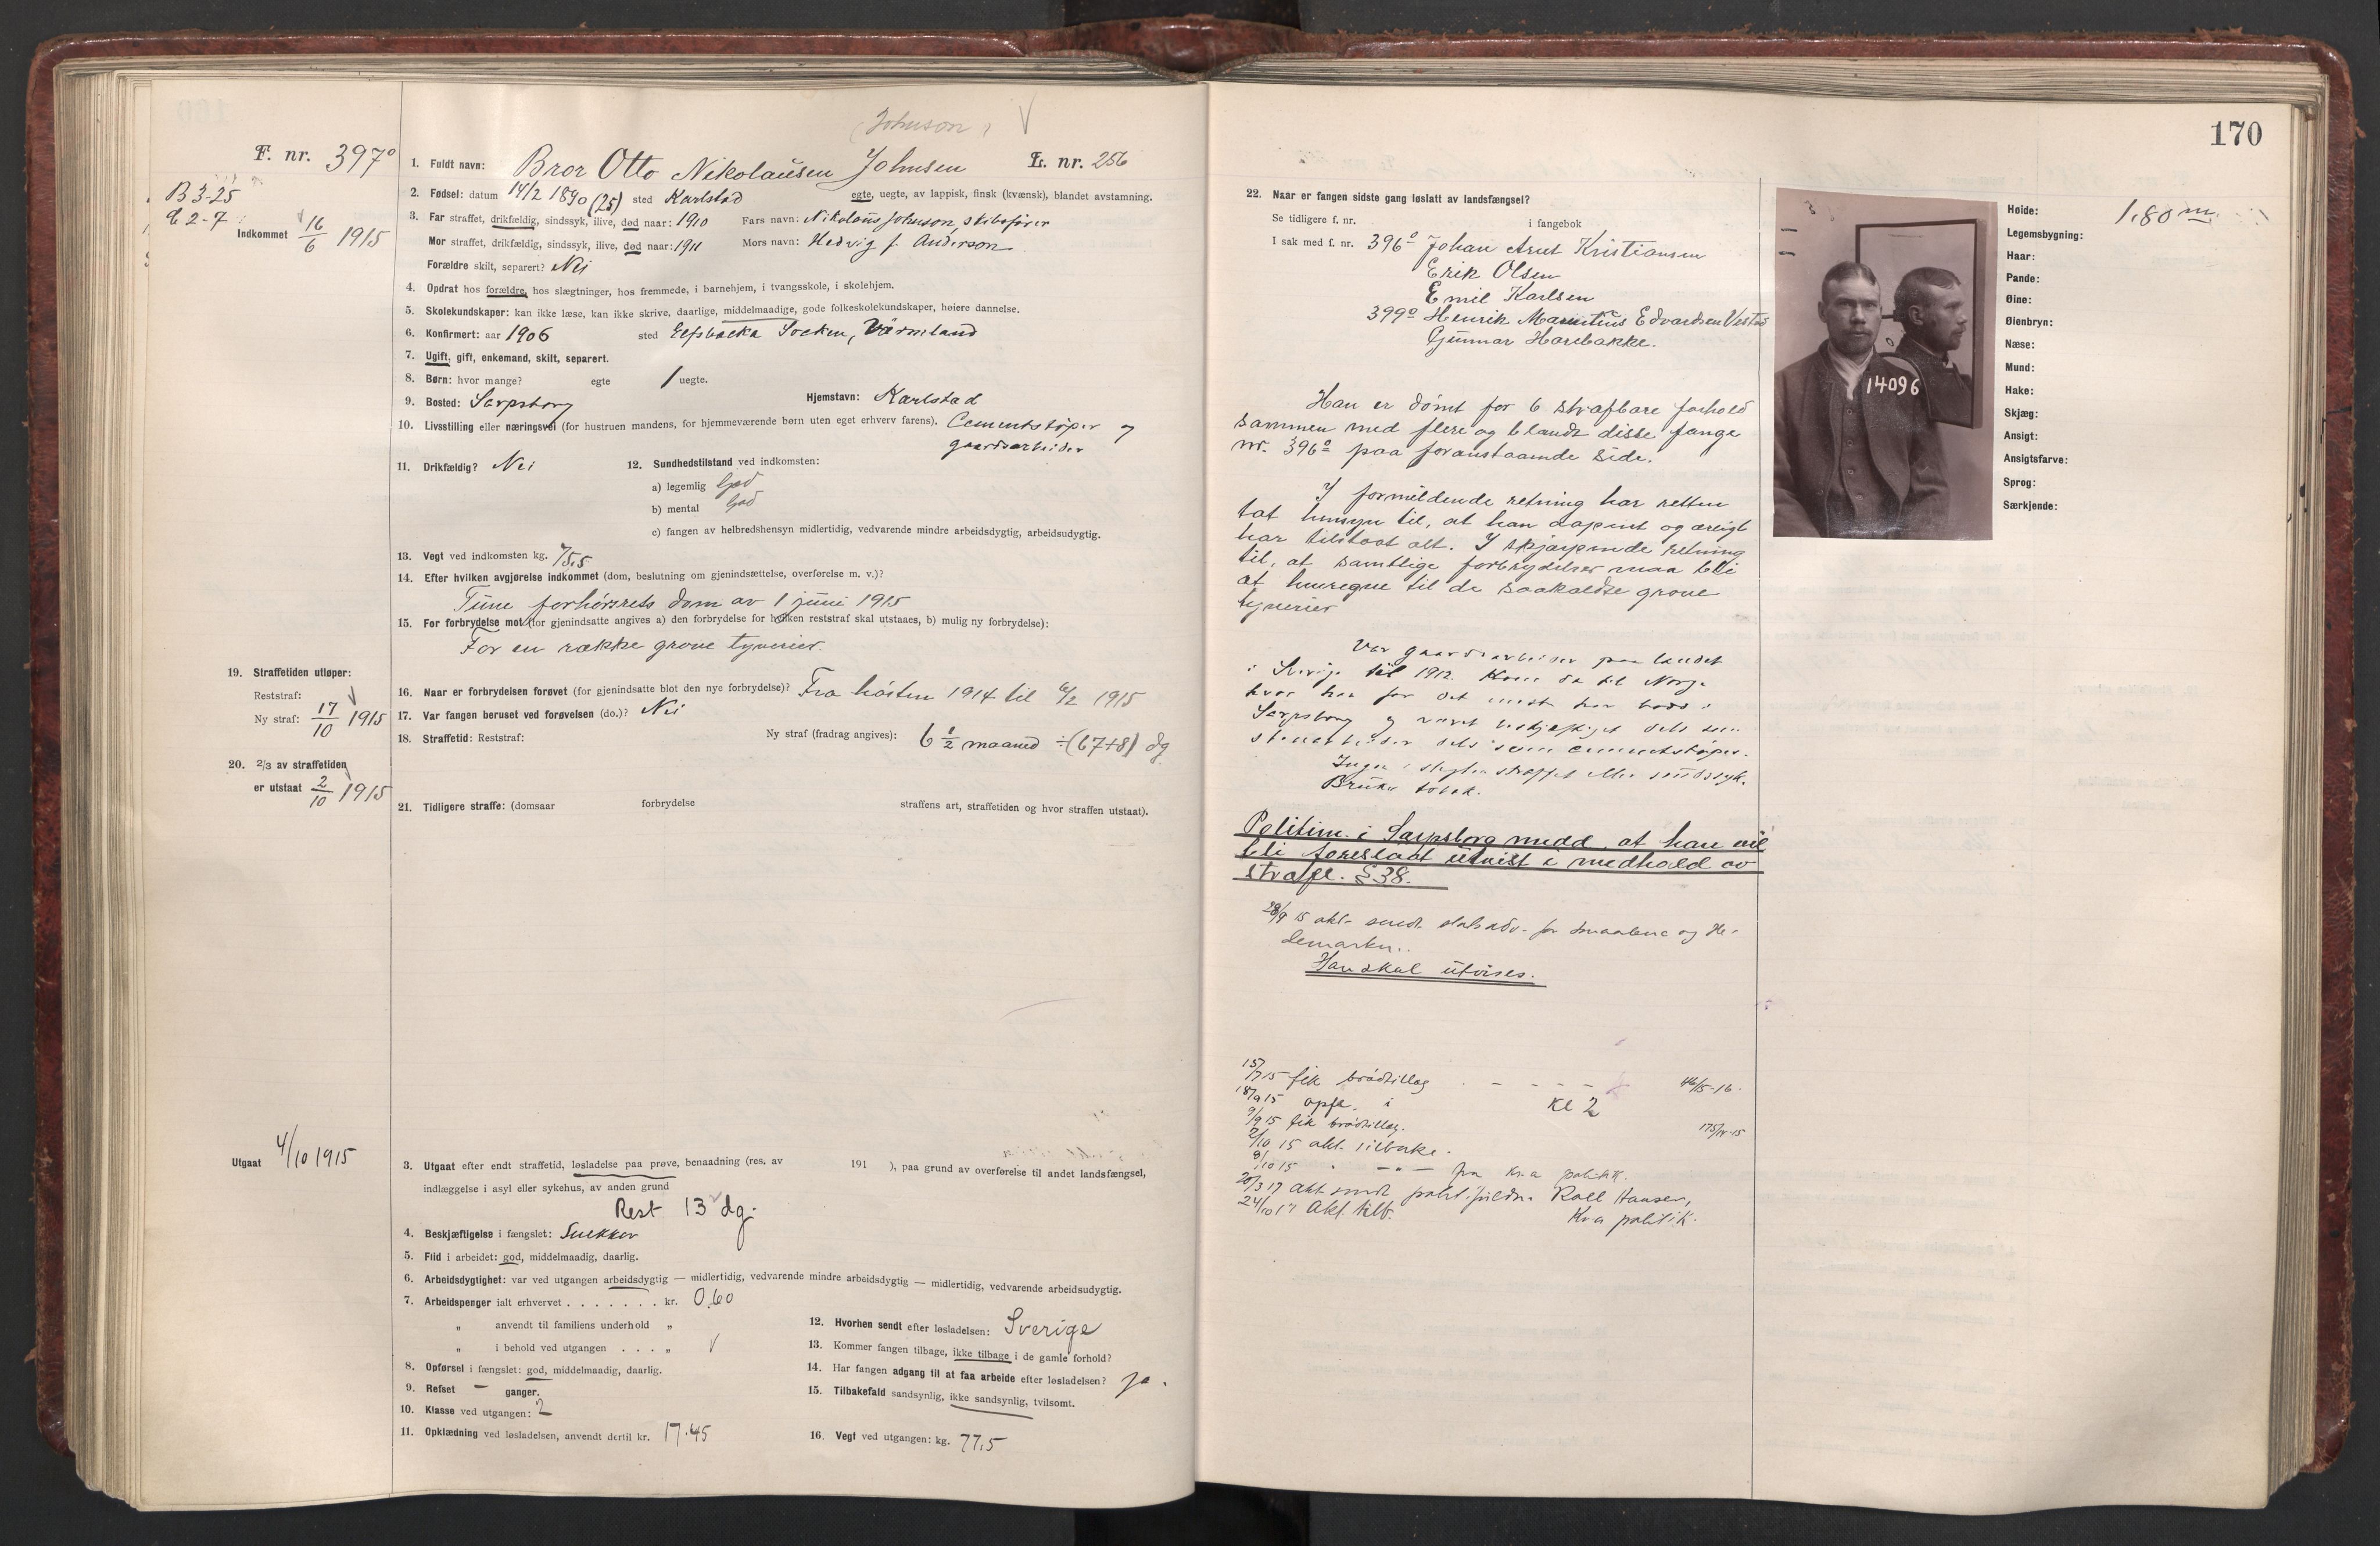 (Johnson)
F. nr. 397º
B 3-25
C 2-7
Indkommet 16/6 1915
1. Fuldt navn: Bror Otto Nikolausen Johnsen L. nr. 256
2. Fødsel: datum 14/2 1890 (25) sted Karlstad egte, uegte, av lappisk, finsk (kvænsk), blandet avstamning.
3. Far straffet, drikfældig, sindssyk, ilive, død naar: 1910 Fars navn: Nikolaus Johnson, skibsfører
Mor straffet, drikfældig, sindssyk, ilive, død naar: 1911 Mors navn: Hedvig f. Anderson
Forældre skilt, separert? Nei
4. Opdrat hos forældre, hos slægtninger, hos fremmede, i barnehjem, i tvangsskole, i skolehjem.
5. Skolekundskaper: kan ikke læse, kan ikke skrive, daarlige, middelmaadige, gode folkeskolekundskaper, høiere dannelse.
6. Konfirmert: aar 1906 sted Elfsbacka Socken, Värmland
7. Ugift, gift, enkemand, skilt, separert.
8. Børn: hvor mange? egte 1 uegte.
9. Bosted: Sarpsborg Hjemstavn: Karlstad
10. Livsstilling eller næringsvei (for hustruen mandens, for hjemmeværende børn uten eget erhverv farens). Cementstøper og
gaardsarbeider
11. Drikfældig? Nei 12. Sundhedstilstand ved indkomsten:
a) legemlig God
b) mental God
c) fangen av helbredshensyn midlertidig, vedvarende mindre arbeidsdygtig, arbeidsudygtig.
13. Vegt ved indkomsten kg. 75,5
14. Efter hvilken avgjørelse indkommet (dom, beslutning om gjenindsættelse, overførelse m. v.)?
Tune forhørsrets dom av 1 juni 1915
15. For forbrydelse mot (for gjenindsatte angives a) den forbrydelse for hvilken reststraf skal utstaaes, b) mulig ny forbrydelse):
For en række grove tyverier.
16. Naar er forbrydelsen forøvet (for gjenindsatte blot den nye forbrydelse)? Fra høsten 1914 til 6/2 1915
17. Var fangen beruset ved forøvelsen (do.)? Nei
18. Straffetid: Reststraf: Ny straf (fradrag angives): 6 1/2 maaned ÷ (67+8) dg
19. Straffetiden utløper:
Reststraf:
Ny straf: 17/10 1915
20. 2/3 av straffetiden
er utstaat 2/10 1915
21. Tidligere straffe: (domsaar forbrydelse straffens art, straffetiden og hvor straffen utstaat).
Utgaat 4/10 1915
3. Utgaat efter endt straffetid, løsladelse paa prøve, benaadning (res. av 191 ), paa grund av overførelse til andet landsfængsel,
indlæggelse i asyl eller sykehus, av anden grund
Rest 13 dg.
4. Beskjæftigelse i fængslet: Snekker
5. Flid i arbeidet: god, middelmaadig, daarlig.
6. Arbeidsdygtighet: var ved utgangen arbeidsdygtig — midlertidig, vedvarende mindre arbeidsdygtig — midlertidig, vedvarende arbeidsudygtig.
7. Arbeidspenger ialt erhvervet . . . . . . . kr. 0,60
„ anvendt til familiens underhold „
„ i behold ved utgangen . . . „
8. Opførsel i fængslet: god, middelmaadig, daarlig.
9. Refset — ganger.
10. Klasse ved utgangen: 2
11. Opklædning ved løsladelsen, anvendt dertil kr. 17.45
12. Hvorhen sendt efter løsladelsen: Sverige
13. Kommer fangen tilbage, ikke tilbage i de gamle forhold?
14. Har fangen adgang til at faa arbeide efter løsladelsen? Ja.
15. Tilbakefald sandsynlig, ikke sandsynlig, tvilsomt.
16. Vegt ved utgangen: kg. 77,5
170
22. Naar er fangen sidste gang løslatt av landsfængsel?
Se tidligere f. nr. i fangebok
I sak med f. nr. 396º Johan Arnt Kristiansen
Erik Olsen
Emil Karlsen
399º Henrik Marentius Edvardsen Vestad
Gunnar Harebakke.
Han er dømt for 6 strafbare forhold
sammen med flere og blandt disse fange
nr. 396º paa foranstaaende side.
I formildende retning har retten
tat hensyn til, at han aapent og ærligt
har tilstaat alt. I skjærpende retning
til, at samtlige forbrydelser maa bli
at henregne til de saakaldte grove
tyverier
Var gaardsarbeider paa landet
i Sverige til 1912. Kom da til Norge
hvor han for det meste har bodd i
Sarpsborg og været beskjæftiget dels som
stenarbeider dels som cementstøper.
Ingen i slegten straffet eller sindssyk.
Bruker tobak.
Politim. i Sarpsborg medd. at han vil
bli foreslaat utvist i medhold av
strafl. § 38.
28/9 15 akt. sendt statsadv. for Smaalene og He-
demarken.
Han skal utvises.
15/7 15 fik brødtillæg - - - - 46/15-16.
18/9 15 opfl. i kl 2
9/9 15 fik brødtillæg. 175/14-15
2/10 15 akt. tilbake.
8/10 15 " —"— fra Kr.a politik.
20/3 17 akt sendt Roll Hansen,
24/10 17 Akt. tilb. Kr.a politik.
14096
Høide: 1,80 m.
Legemsbygning:
Haar:
Pande:
Øine:
Øienbryn:
Næse:
Mund:
Hake:
Skjæg:
Ansigt:
Ansigtsfarve:
Sprog:
Særkjende: